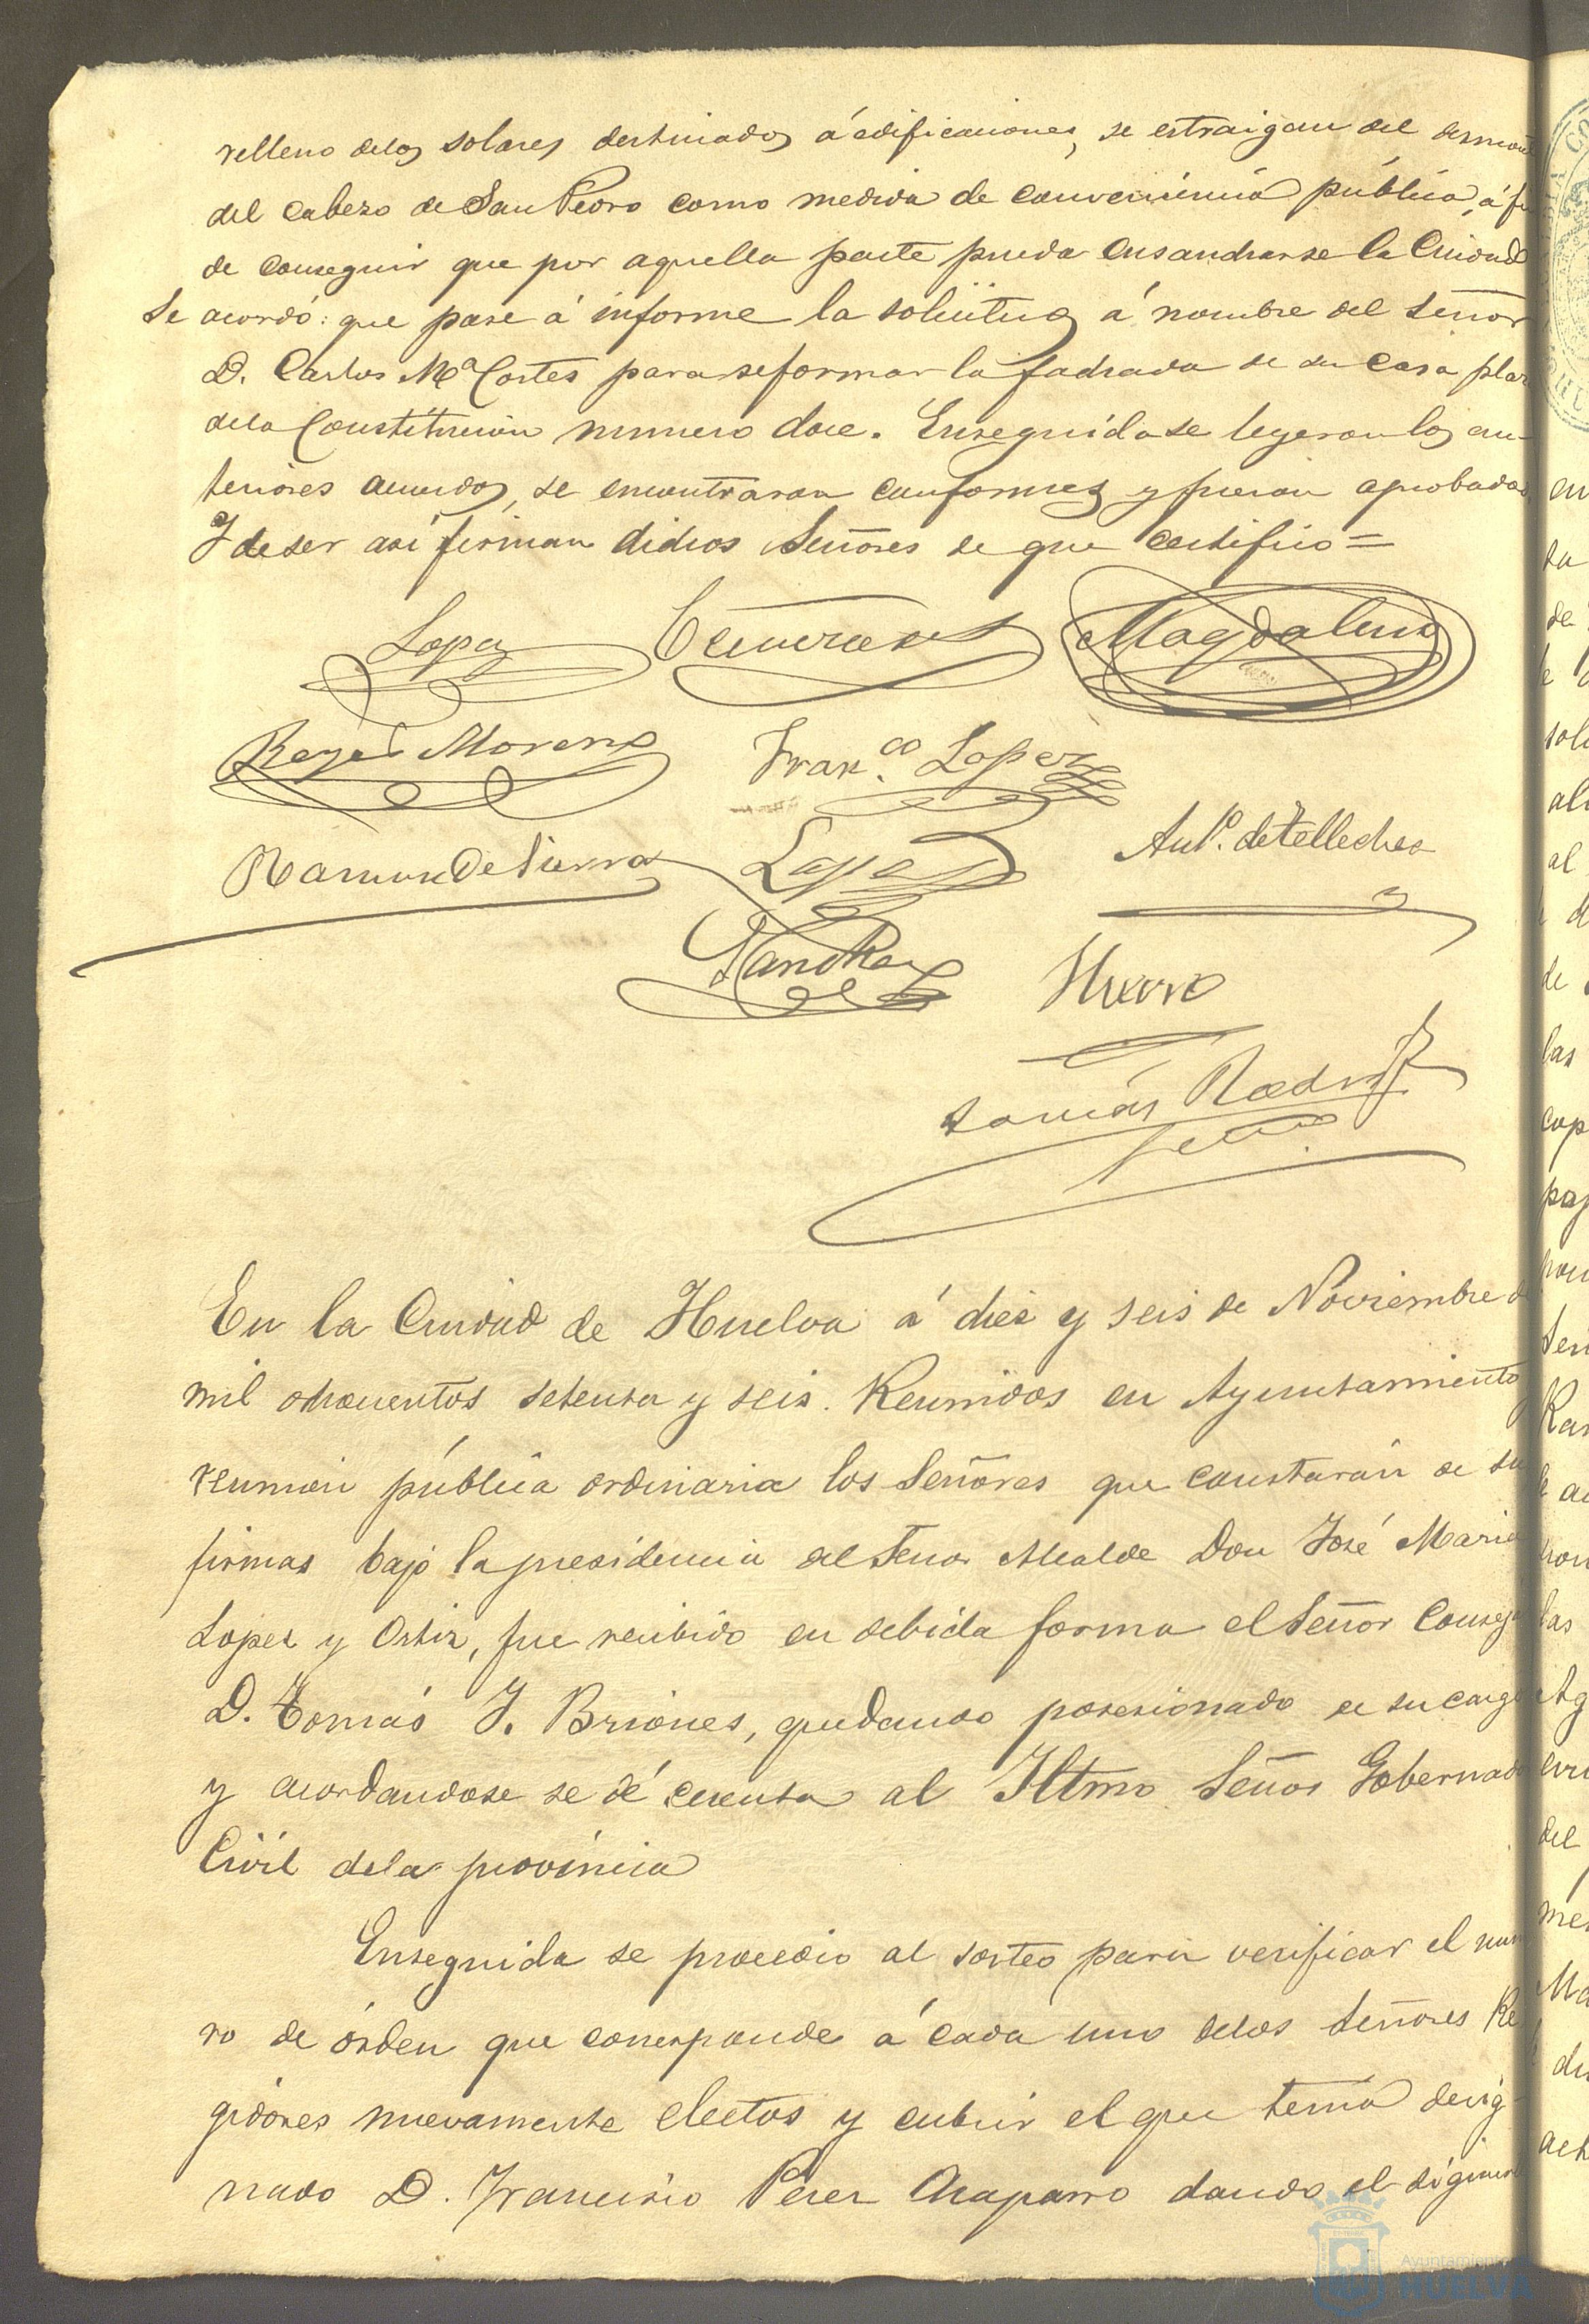 relleno delos solares destinados á edificaciones, se estraigan del desmon
del cabezo de San Pedro como medida de conveniencia pública, á fi
de conseguir que por aquella parte pueda ensancharse la Ciudad
Se acordó: que pase á informe la solicitud á nombre del Señor
D. Carlos Mª Cortes para reformar la fachada de su casa plaz
dela Constitucion numero doce. Enseguida se leyeron los an-
teriores acuerdos, se encontraron conformes y fueron aprobados
Y de ser asi firman dichos Señores de que certifico=
Lopez
Magdalena
Reyes Moreno Fran.co Lopez
Ramon De Sierra Lopez Ant.o de Tellechea
Sanchez Hierro
Tomás Rodrig
En la Ciudad de Huelva á diez y seis de Noviembre d
mil ochocientos setenta y seis. Reunidos en Ayuntamiento
reunion pública ordinaria los Señores que constarán de su
firmas bajo la presidencia del Señor Alcalde Don José Maria
Lopez y Ortiz, fue recibido en debida forma el Señor Conseja
D. Tomás J. Briones, quedando posesionado de su cargo
y acordandose se dé cuenta al Iltmo Señor Gobernado
Civil dela provincia
Enseguida se procedio al sorteo para verificar el num
ro de órden que corresponde á cada uno delos Señores Re
gidores nuevamente electos y cubrir el que tenia desig-
nado D. Francisco Perez Chaparro dando el siguien
Ayuntamiento
HUELVA